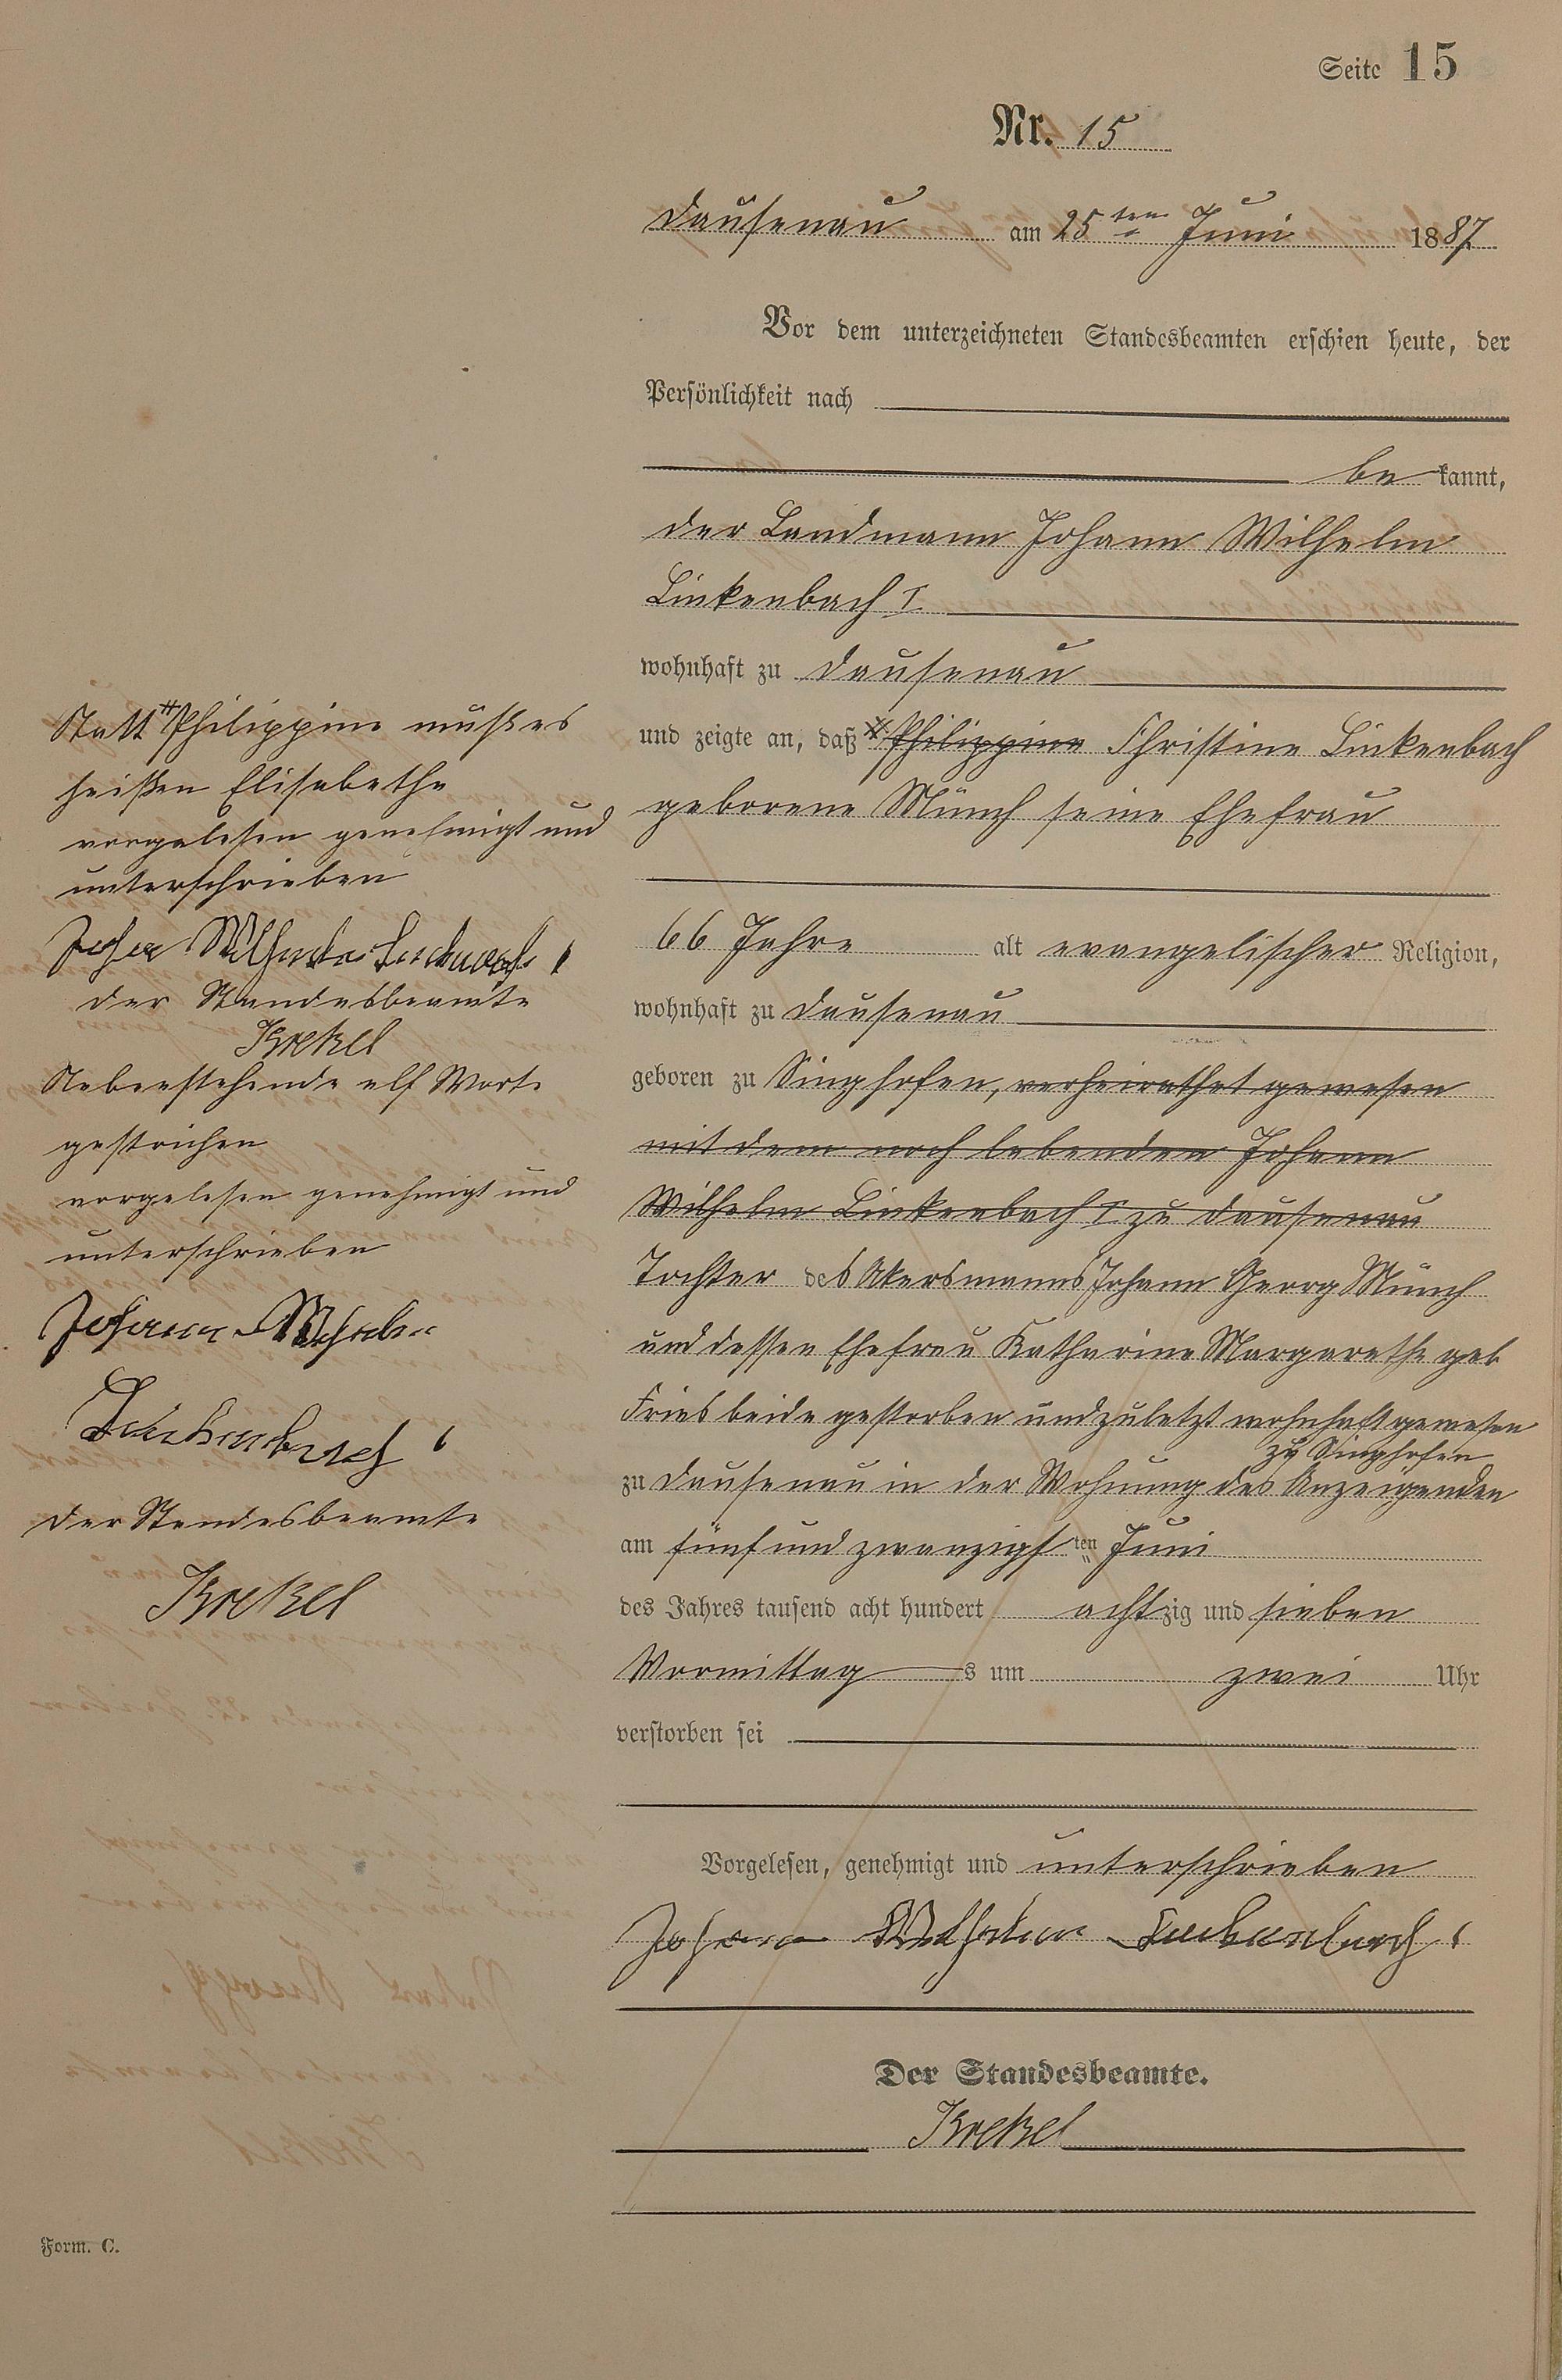 Seite 15
Nr. 15
Dausenau am 25ten Juni 1887
Vor dem unterzeichneten Standesbeamten erschien heute, der
Persönlichkeit nach
be kannt,
der Landmann Johann Wilhelm
Linkenbach I.
wohnhaft zu Dausenau
und zeigte an, daß Philippine Christine Linkenbach
geborene Münch seine Ehefrau
66 Jahre alt evangelischer Religion,
wohnhaft zu Dausenau
geboren zu Singhofen, verheirathet gewesen
mit dem noch lebenden Johann
Wilhelm Linkenbach I zu Dausenau
Tochter des Akersmanns Johann Georg Münch
und dessen Ehefrau Katharine Margarethe geb
Fries beide gestorben und zuletzt wohnhaft gewesen
zu Singhofen
zu Dausenau in der Wohnung des Anzeigenden
am fünf und zwanzigsten Juni
des Jahres tausend acht hundert achtzig und sieben
Vormittags um zwei Uhr
verstorben sei
Vorgelesen, genehmigt und unterschrieben
Johann Wilhelm Linkenbach I
Der Standesbeamte.
Krekel
Statt Philippine muß es
heißen Elisabethe
vorgelesen genehmigt und
unterschrieben
Johann Wilhelm Linkenbach I
Der Standesbeamte
Krekel
Nebenstehende elf Worte
gestrichen
vorgelesen genehmigt und
unterschrieben
Johann Wilhelm
Linkenbach I
Der Standesbeamte
Krekel
Form. C.